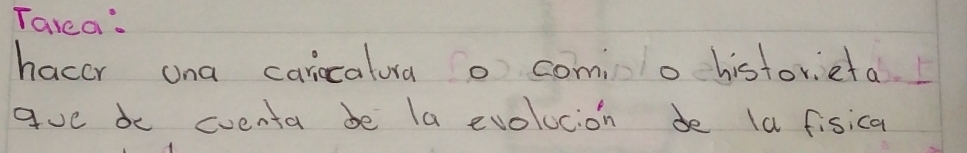 Tarea:
hacer una caricatura o comi o historieta
que de cuenta de la evolución de la fisica